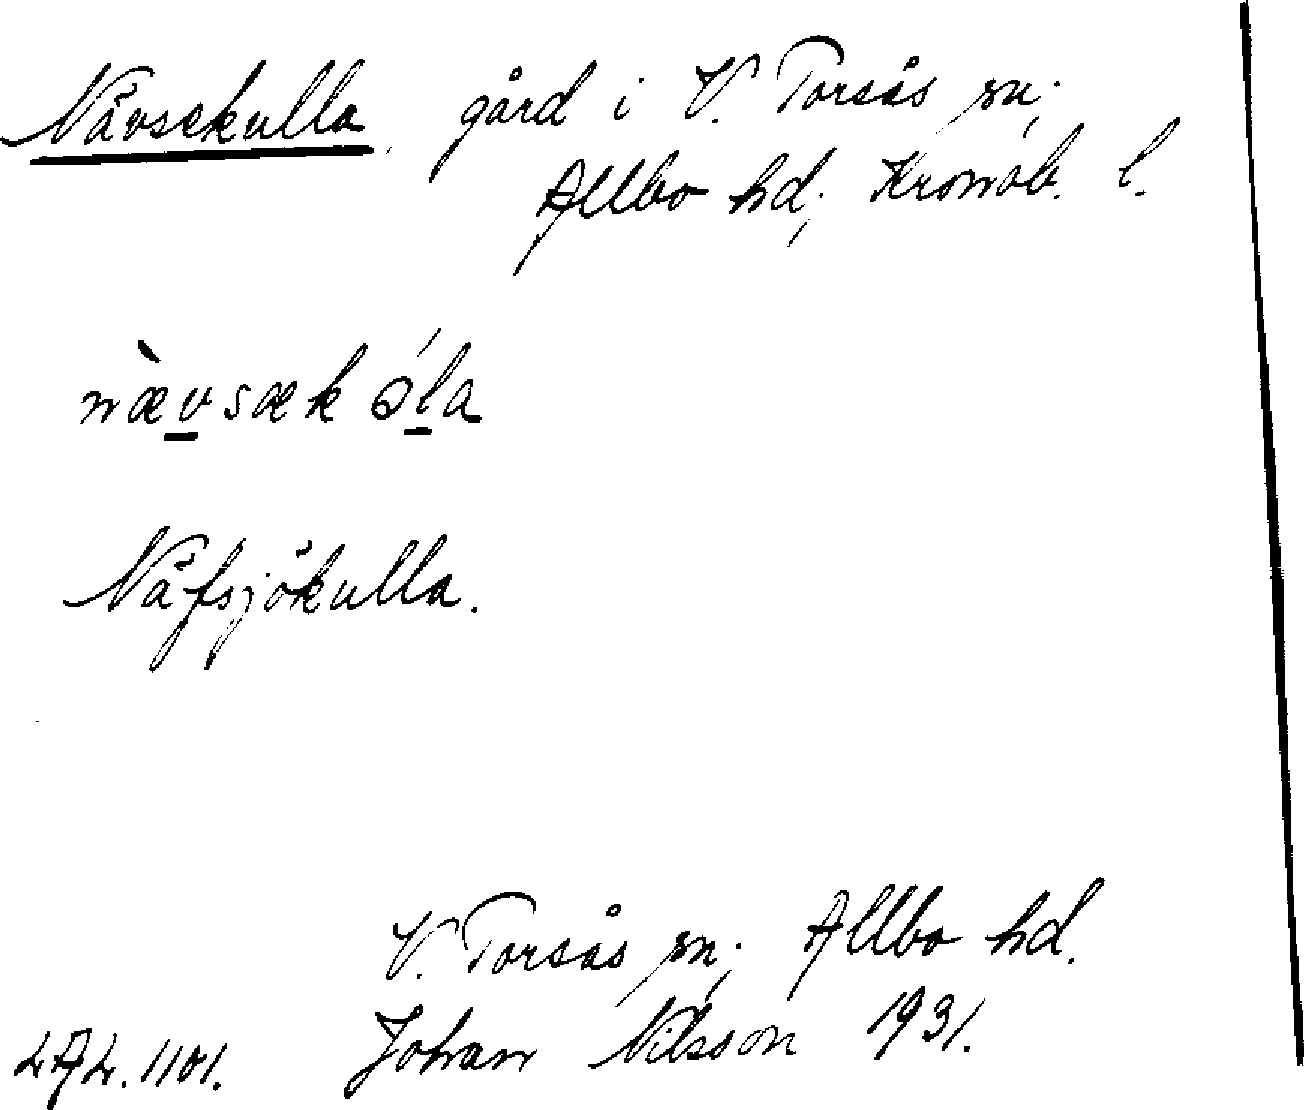 Nävsekulla, gård i V. Torsås sn;
Allbo hd; Kronob. l.
nævsækóla
Näfsjökulla.
V. Torsås sn; Allbo hd.
Johan Nilsson 1931.
LAL. 1101.